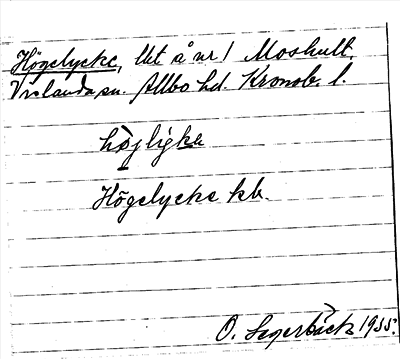 Högelycke, lht å nr 1 Moshult
Vislanda sn. Allbo hd. Kronob. l.
höjligke
Högelycke kb.
O. Segerbäck 1935.